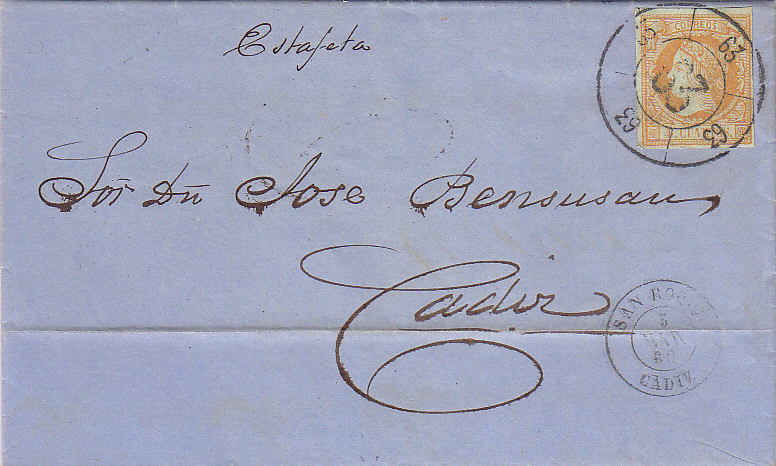 Estafeta
CORREOS
63
63
63
63
63
Sor Dn Jose Bensusan
Cadiz
SAN ROQUE
5
MAR
60
CADIZ